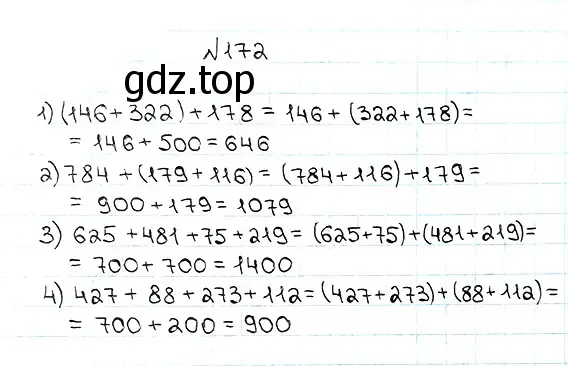 №172
gdz.top
1) (146+322)+178 = 146+(322+178)=
= 146+500=646
2) 784+(179+116)=(784+116)+179=
= 900+179=1079
3) 625+481+75+219=(625+75)+(481+219)=
= 700+700=1400
4) 427+88+273+112=(427+273)+(88+112)=
= 700+200=900